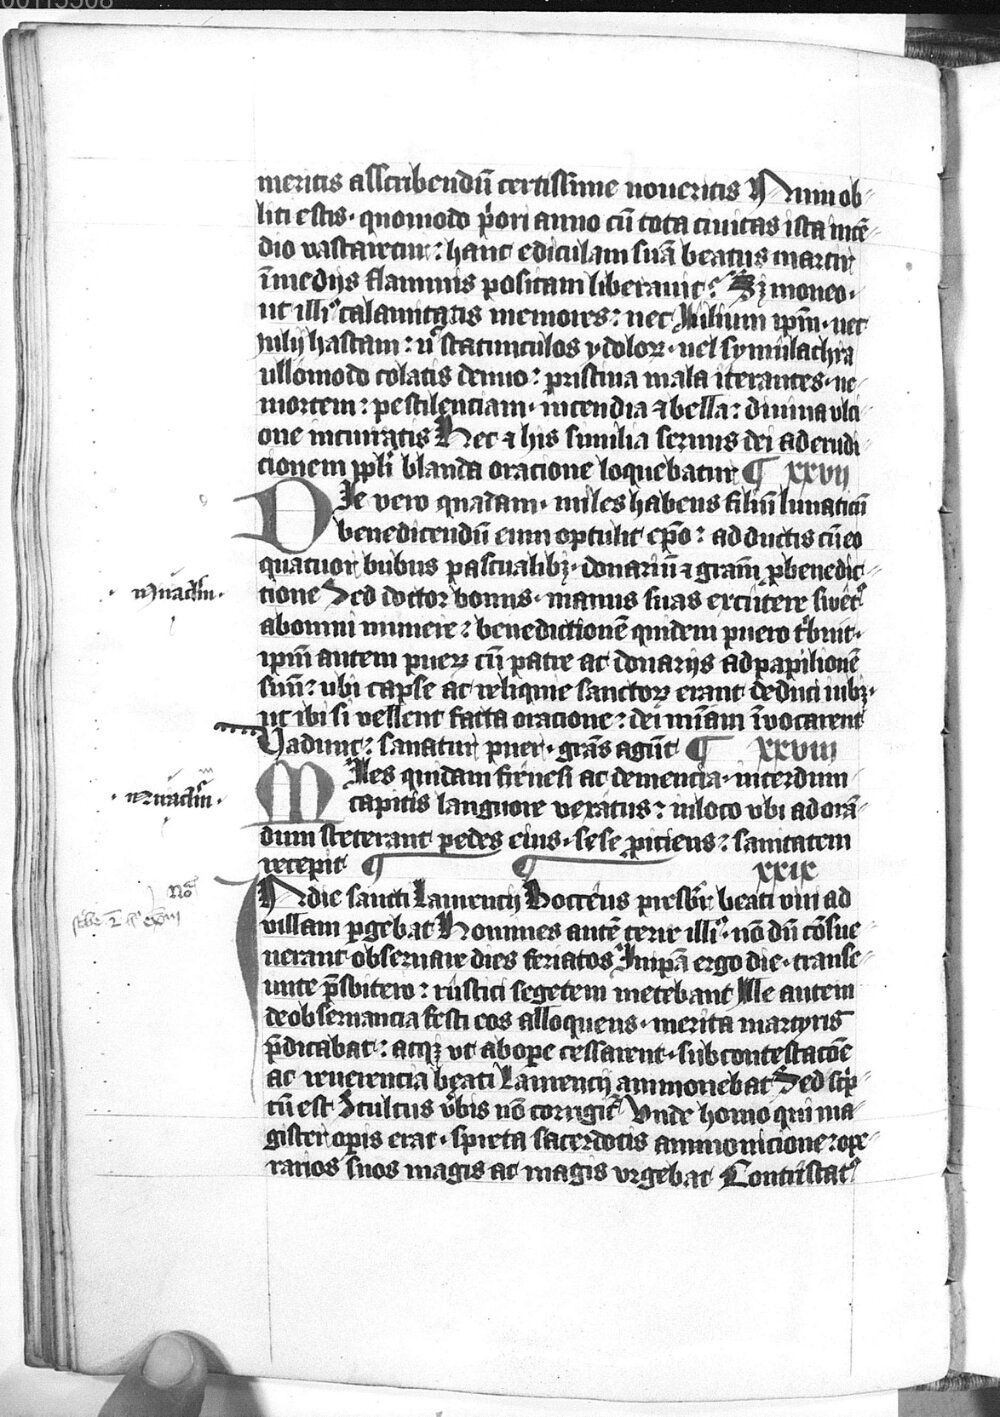 meritis asscribendū certissime noueritis Num ob
liti estis · quomodo p̄ori anno cū tota ciuitas ista incē
dio vastaretur : hanc ediculam suā beatus martir
ī medijs flammis positam liberauit ? Sꝫ moneo ·
ut illiꝰ calamitatis memores : nec Iulium ipm̄ · nec
iulij hastam : ūl statunculos ydoloꝝ · uel symulachra
ullomodo colatis denuo : pristina mala iterantes · ne
mortem : pestilenciam · incendia ⁊ bella : diuina vlci
one incurratis Hec ⁊ his similia seruus dei ad erudi
cionem ppl̄i blanda oracione loquebatur ¶ xxvii
Die vero quadam · miles habens filiū lunaticū
benedicendū eum optulit ep̄o : adductis cū eo
quatuor bubus pascualibꝫ · donariū ⁊ gram̄ ꝓ benedic
· miraclm̄ ·
tione Sed doctor bonus · manus suas excutere suetꝰ
ab omni munere : benedictionē quidem puero tͥbuit ·
ipm̄ autem pueꝝ cū patre ac donarijs ad papilionē
suū : ubi capse ac reliquie sanctoꝝ erant deduci iubꝫ ·
ut ibi si vellent facta oracione : dei mīam īuocarent
Vadunt : sanatur puer · grās agūt ¶ xxviii
Miles quidam frenesi ac demencia · interdum
· miraclm̄ ·
capitis languore vexatus : in loco vbi ad orā
dum steterant pedes eius · sese ꝓiciens : sanitatem
recepit ¶ ¶ xxix
Nō
In die sancti Laurencij Bocceus presbr̄ beati viri ad
villam ꝑgebat Homines autē terre illiꝰ · nō dū cōsue
uerant obseruare dies feriatos In ip̄a ergo die · transe
unte p̄sbitero : rustici segetem metebant Ille autem
de obseruancia festi eos alloquens · merita martyris
p̄dicabat : atqꝫ vt ab ope cessarent · sub contestacōe
ac reuerencia beati Laurencij ammonebat Sed scͥp
tū est Stultus v̄bis nō corrigit̉ Vnde homo qui ma
gister opis erat · spreta sacerdotis ammonicione : ope
rarios suos magis ac magis vrgebat Contristatꝰ